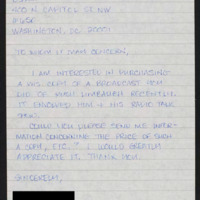 400 N. CAPITOL ST. NW
# 650
WASHINGTON, DC 20001
TO WHOM IT MAY CONCERN,
I AM INTERESTED IN PURCHASING
A VHS COPY OF A BROADCAST YOU
DID OF RUSH LIMBAUGH RECENTLY.
IT INVOLVED HIM & HIS RADIO TALK
SHOW.
COULD YOU PLEASE SEND ME INFOR-
MATION CONCERNING THE PRICE OF SUCH
A COPY, ETC. I WOULD GREATLY
APPRECIATE IT. THANK YOU.
SINCERELY,